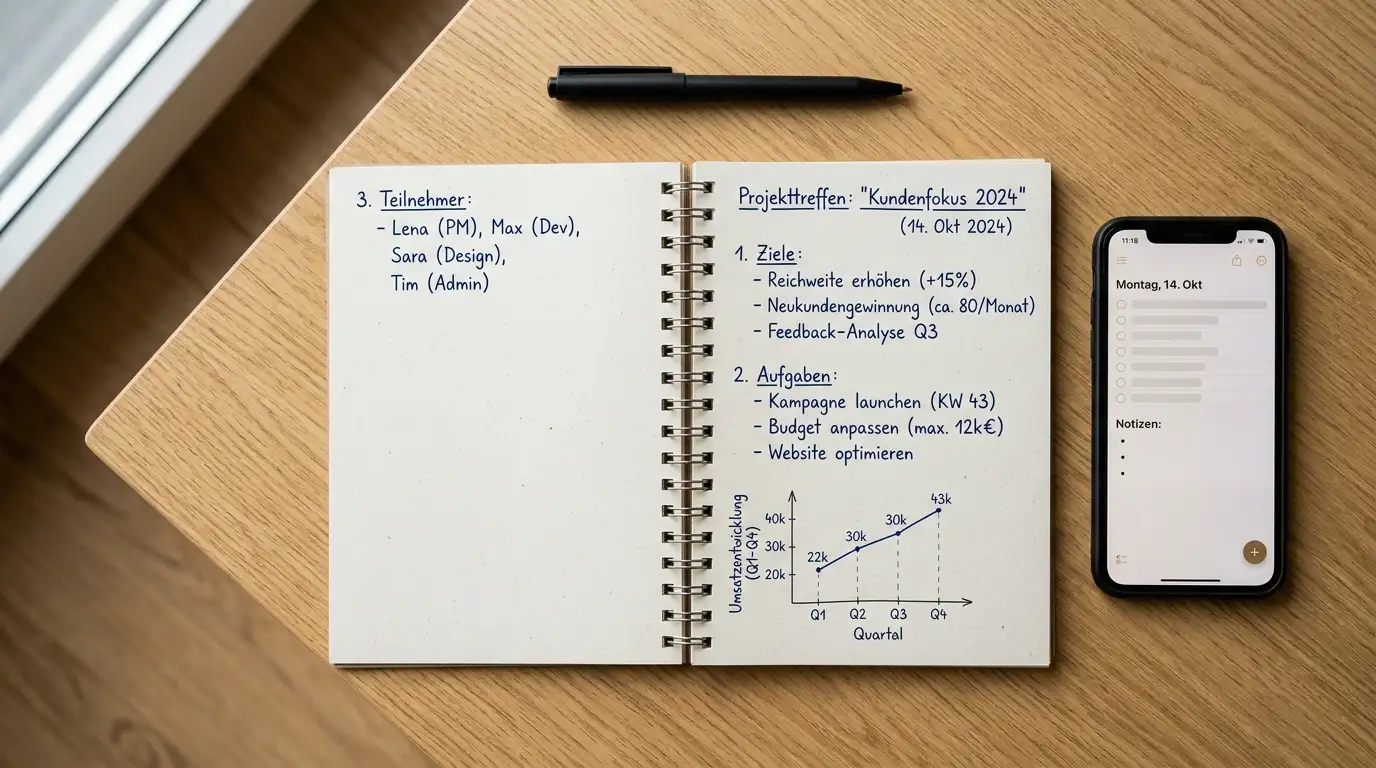 3. Teilnehmer:
- Lena (PM), Max (Dev),
Sara (Design),
Tim (Admin)
Projekttreffen: "Kundenfokus 2024"
(14. Okt 2024)
1. Ziele:
- Reichweite erhöhen (+15%)
- Neukundengewinnung (ca. 80/Monat)
- Feedback-Analyse Q3
2. Aufgaben:
- Kampagne launchen (KW 43)
- Budget anpassen (max. 12k€)
- Website optimieren
Umsatzentwicklung
(Q1-Q4)
40k
30k
20k
22k
30k
30k
43k
Q1 Q2 Q3 Q4
Quartal
11:18
Montag, 14. Okt
Notizen: